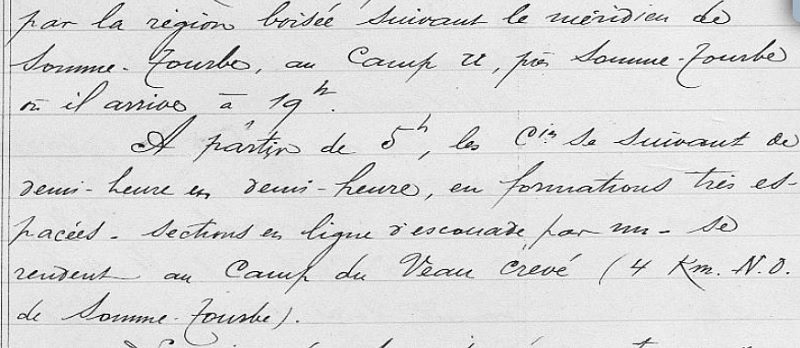 par la région boisée suivant le méridien de
Somme-Tourbe, au Camp U, près Somme-Tourbe
où il arrive à 19h.
A pârtir de 5h, les Cies se suivant de
demi-heure en demi-heure, en formations très es-
pacées - sections en ligne d'escouade par un - se
rendent au Camp du Veau Crevé (4 Km. N.O.
de Somme-Tourbe).